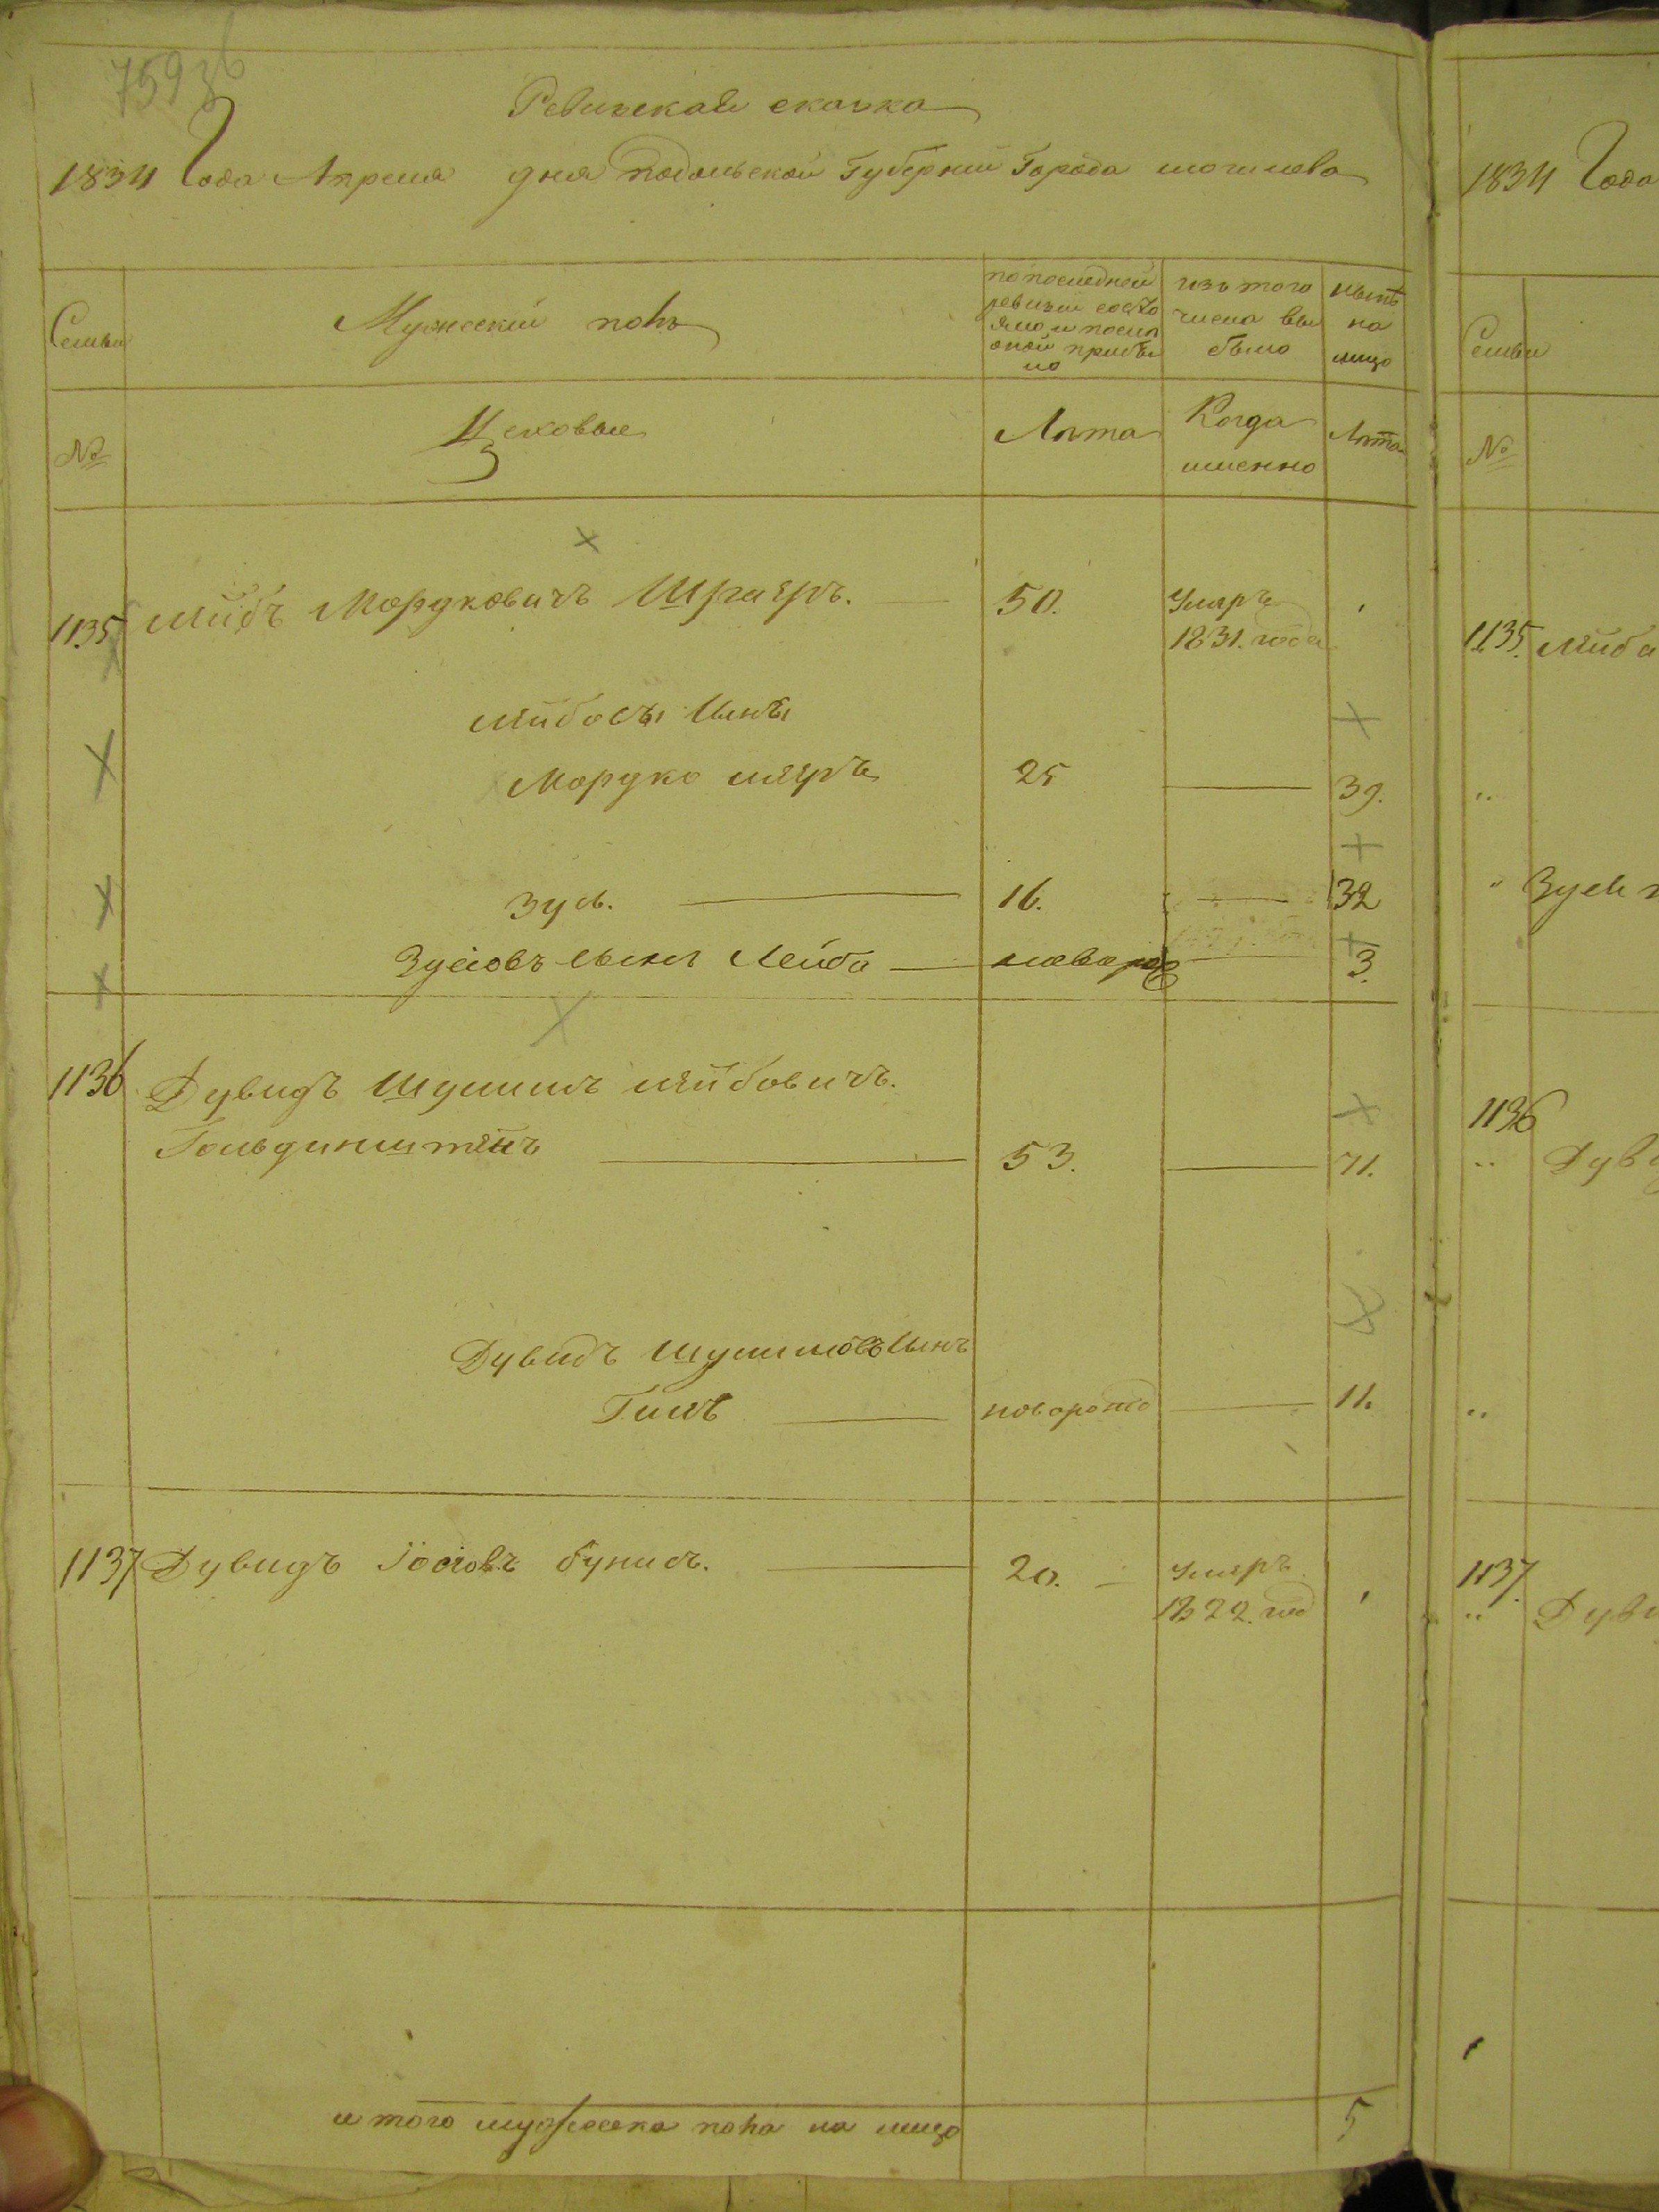 759зб
Ревизская сказка
1834 Года Апреля дня Подольской Губернии Города могилева
Семьи
Мужеский полъ
по последней
ревизии состо
яло и после
оной прибы
ло
изъ того
числа вы
было
ныне
на
лицо
№
Цеховые
Лета
Когда
именно
Лета
1135
Лейбъ Мордковичъ Шраеръ.
50.
Умеръ
1831. года
Лейбовы сыны
Мордко мееръ
25
39.
Зусь.
16.
32
Зусіовъ сынъ Лейба
новорож
3.
1136
Дувидъ Шулимъ Лейбовичъ.
Гольдинштейнъ
53.
71.
Дувидъ Шулимовъ сынъ
новорожд
11.
1137
Дувидъ Іосіовъ бунисъ.
20.
Умеръ
1822. год
и того мужеска пола на лицо
5
1834 Года
Семьи
№
1135. Лейба
Зусь
1136
Дув
1137.
Дув